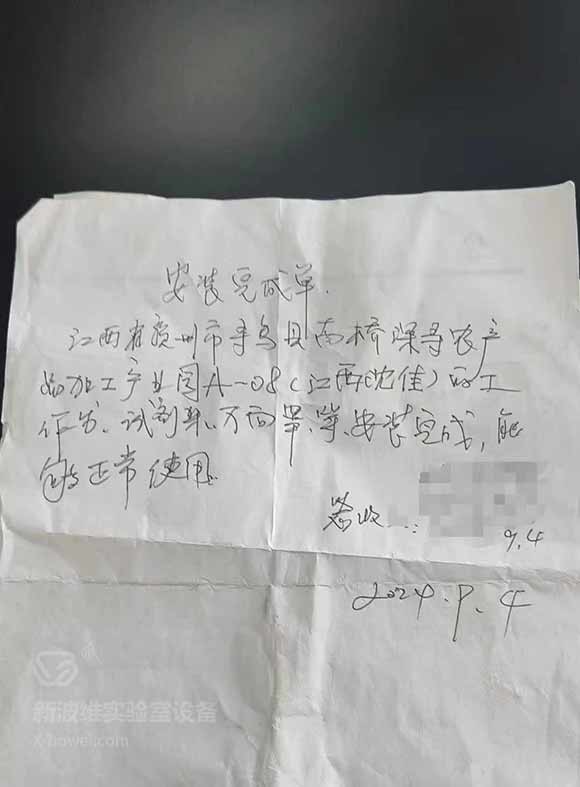 安装完成单.
江西省赣州市寻乌县南桥深寻农产
品加工产业园A-08(江西沈佳)的工
作台、试剂架、万向罩、等、安装完成,能
够正常使用.
签收...:
9.4
2024.9.4
新波维实验室设备
x-bowei.com